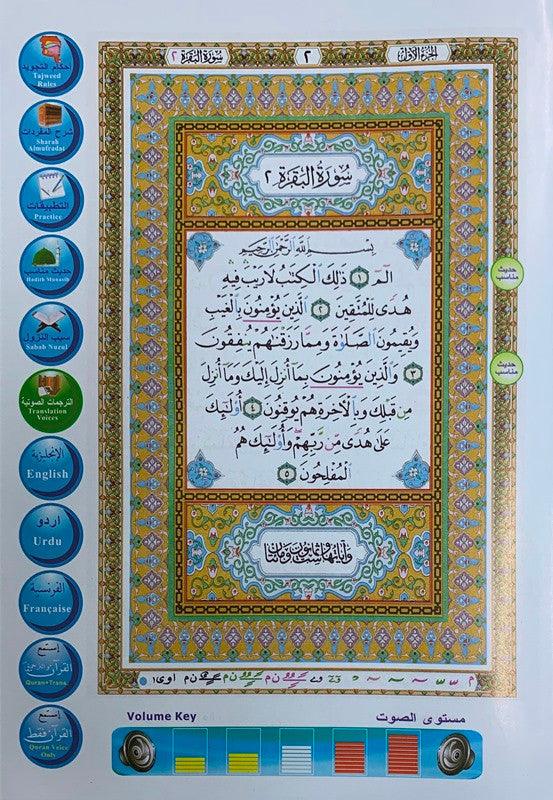 الجزء الأول
٢
سورة البقرة ٢
سُورَةُ البَقَرَةِ ٢
بِسْمِ اللَّهِ الرَّحْمَٰنِ الرَّحِيمِ
الٓمٓ ١ ذَٰلِكَ الْكِتَٰبُ لَا رَيْبَ فِيهِ
هُدًى لِّلْمُتَّقِينَ ٢ الَّذِينَ يُؤْمِنُونَ بِالْغَيْبِ
وَيُقِيمُونَ الصَّلَوٰةَ وَمِمَّا رَزَقْنَٰهُمْ يُنفِقُونَ
٣ وَالَّذِينَ يُؤْمِنُونَ بِمَآ أُنزِلَ إِلَيْكَ وَمَآ أُنزِلَ
مِن قَبْلِكَ وَبِالْآخِرَةِ هُمْ يُوقِنُونَ ٤ أُولَٰٓئِكَ
عَلَىٰ هُدًى مِّن رَّبِّهِمْ وَأُولَٰٓئِكَ هُمُ
الْمُفْلِحُونَ ٥
حديث
مناسب
حديث
مناسب
أحكام التجويد
Tajweed
Rules
شرح المفردات
Sharah
Almufradat
التطبيقات
Practice
حديث مناسب
Hadith Munasib
سبب النزول
Sabab Nuzul
الترجمات الصوتية
Translation
Voices
الإنجليزية
English
اردو
Urdu
الفرنسية
Française
إستمع
القرآن والترجمة
Quran+Trans.
إستمع
القرآن فقط
Quran Voice
Only
Volume Key
مستوى الصوت